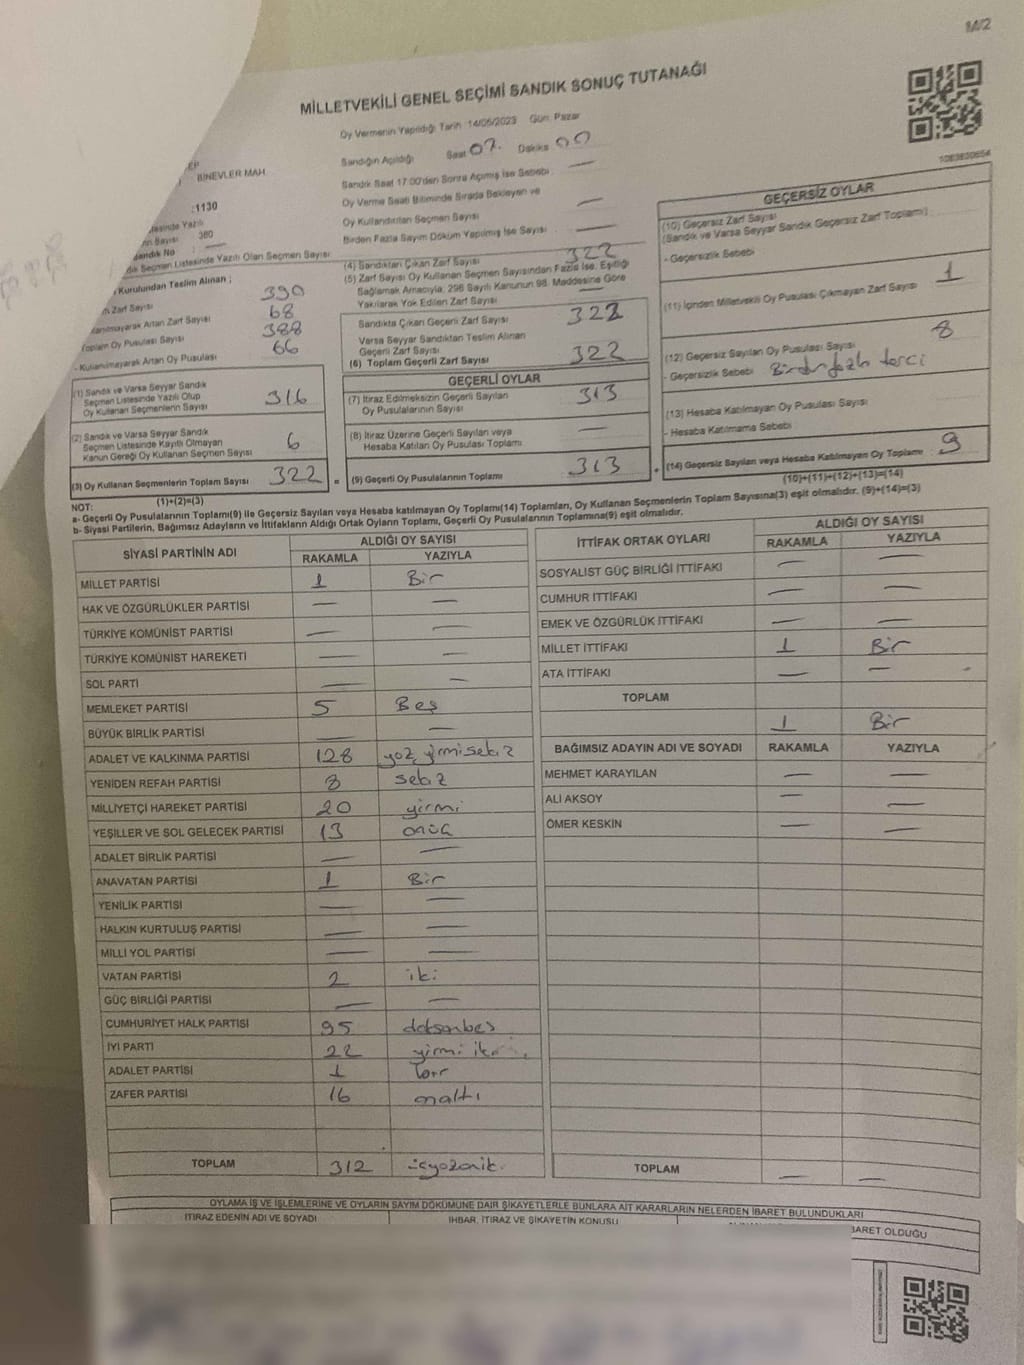 M/2
MİLLETVEKİLİ GENEL SEÇİMİ SANDIK SONUÇ TUTANAĞI
Oy Vermenin Yapıldığı Tarih :14/05/2023 Gün: Pazar
Sandığın Açıldığı Saat 07. Dakika 00
Sandık Saat 17:00'den Sonra Açımış İse Sebebi :
Oy Verme Saati Bitiminde Sırada Bekleyen ve
Oy Kullandırılan Seçmen Sayısı —
Birden Fazla Sayım Döküm Yapılmış İse Sayısı —
EP
BİNEVLER MAH.
:1130
Listesinde Yazılı
Sayısı : 380
Sandık No : —
Seçmen Listesinde Yazılı Olan Seçmen Sayısı :
Kurulundan Teslim Alınan ;
Zarf Sayısı 390
Artan Zarf Sayısı 68
Toplam Oy Pusulası Sayısı 388
- Kullanılmayarak Artan Oy Pusulası 66
(1) Sandık ve Varsa Seyyar Sandık
Seçmen Listesinde Yazılı Olup
Oy Kullanan Seçmenlerin Sayısı 316
(2) Sandık ve Varsa Seyyar Sandık
Seçmen Listesinde Kayıtlı Olmayan
Kanun Gereği Oy Kullanan Seçmen Sayısı 6
(3) Oy Kullanan Seçmenlerin Toplam Sayısı 322 =
(1)+(2)=(3)
(4) Sandıktan Çıkan Zarf Sayısı 322
(5) Zarf Sayısı Oy Kullanan Seçmen Sayısından Fazla İse, Eşitliği
Sağlamak Amacıyla; 298 Sayılı Kanunun 98. Maddesine Göre
Yakılarak Yok Edilen Zarf Sayısı —
Sandıkta Çıkan Geçerli Zarf Sayısı 322
Varsa Seyyar Sandıktan Teslim Alınan
Geçerli Zarf Sayısı
(6) Toplam Geçerli Zarf Sayısı 322
GEÇERLİ OYLAR
(7) İtiraz Edilmeksizin Geçerli Sayılan
Oy Pusulalarının Sayısı 313
(8) İtiraz Üzerine Geçerli Sayılan veya
Hesaba Katılan Oy Pusulası Toplamı —
(9) Geçerli Oy Pusulalarının Toplamı 313
GEÇERSİZ OYLAR
(10) Geçersiz Zarf Sayısı
(Sandık ve Varsa Seyyar Sandık Geçersiz Zarf Toplamı)
- Geçersizlik Sebebi
(11) İçinden Milletvekili Oy Pusulası Çıkmayan Zarf Sayısı 1
(12) Geçersiz Sayılan Oy Pusulası Sayısı 8
- Geçersizlik Sebebi
(13) Hesaba Katılmayan Oy Pusulası Sayısı
- Hesaba Katılmama Sebebi
(14) Geçersiz Sayılan veya Hesaba Katılmayan Oy Toplamı : 9
(10)+(11)+(12)+(13)=(14)
NOT:
a- Geçerli Oy Pusulalarının Toplamı(9) ile Geçersiz Sayılan veya Hesaba katılmayan Oy Toplamı(14) Toplamları, Oy Kullanan Seçmenlerin Toplam Sayısına(3) eşit olmalıdır. (9)+(14)=(3)
b- Siyasi Partilerin, Bağımsız Adayların ve İttifakların Aldığı Ortak Oyların Toplamı, Geçerli Oy Pusulalarının Toplamına(9) eşit olmalıdır.
SİYASİ PARTİNİN ADI ALDIĞI OY SAYISI
RAKAMLA YAZIYLA
MİLLET PARTİSİ 1 Bir
HAK VE ÖZGÜRLÜKLER PARTİSİ — —
TÜRKİYE KOMÜNİST PARTİSİ — —
TÜRKİYE KOMÜNİST HAREKETİ — —
SOL PARTİ — —
MEMLEKET PARTİSİ 5 Beş
BÜYÜK BİRLİK PARTİSİ — —
ADALET VE KALKINMA PARTİSİ 128 yüz yirmisekiz
YENİDEN REFAH PARTİSİ 8 sekiz
MİLLİYETÇİ HAREKET PARTİSİ 20 yirmi
YEŞİLLER VE SOL GELECEK PARTİSİ 13 onüç
ADALET BİRLİK PARTİSİ — —
ANAVATAN PARTİSİ 1 Bir
YENİLİK PARTİSİ — —
HALKIN KURTULUŞ PARTİSİ — —
MİLLİ YOL PARTİSİ — —
VATAN PARTİSİ 2 iki
GÜÇ BİRLİĞİ PARTİSİ — —
CUMHURİYET HALK PARTİSİ 95 doksanbeş
İYİ PARTİ 22 yirmi iki
ADALET PARTİSİ 1 bir
ZAFER PARTİSİ 16 onaltı
TOPLAM 312 üçyüzonik.
İTTİFAK ORTAK OYLARI ALDIĞI OY SAYISI
RAKAMLA YAZIYLA
SOSYALİST GÜÇ BİRLİĞİ İTTİFAKI — —
CUMHUR İTTİFAKI — —
EMEK VE ÖZGÜRLÜK İTTİFAKI — —
MİLLET İTTİFAKI 1 Bir
ATA İTTİFAKI — —
TOPLAM 1 Bir
BAĞIMSIZ ADAYIN ADI VE SOYADI RAKAMLA YAZIYLA
MEHMET KARAYILAN — —
ALİ AKSOY — —
ÖMER KESKİN — —
TOPLAM — —
OYLAMA İŞ VE İŞLEMLERİNE VE OYLARIN SAYIM DÖKÜMÜNE DAİR ŞİKAYETLERLE BUNLARA AİT KARARLARIN NELERDEN İBARET BULUNDUKLARI
İTİRAZ EDENİN ADI VE SOYADI İHBAR, İTİRAZ VE ŞİKAYETİN KONUSU İBARET OLDUĞU